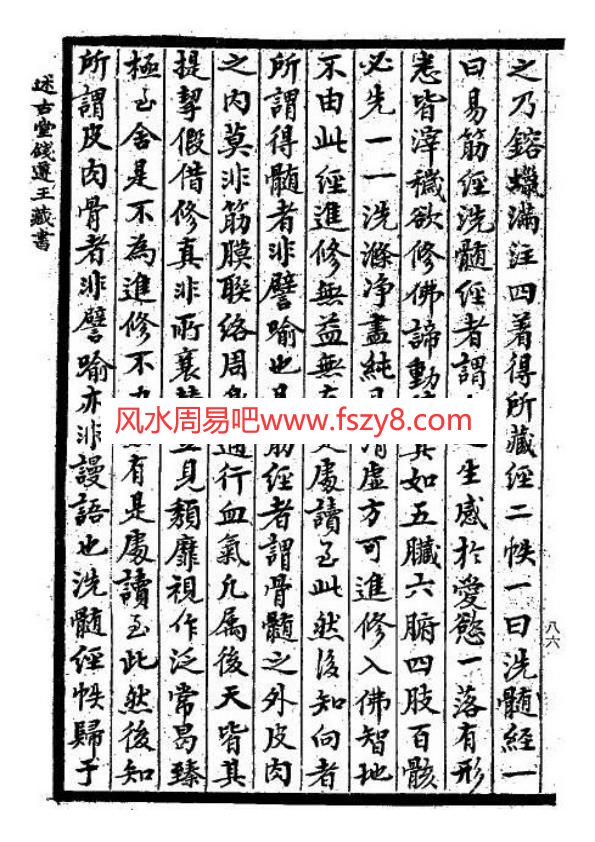 之乃鎔蠟滿注四着得所藏經二帙一曰洗髓經一
曰易筋經洗髓經者謂生感於愛慾一落有形
悉皆滓穢欲修佛諦動真如五臟六腑四肢百骸
必先一一洗滌净盡純清虛方可進修入佛智地
不由此經進修無益無有是處讀至此然後知向者
所謂得髓者非譬喻也易筋經者謂骨髓之外皮肉
之内莫非筋膜聯絡周身通行血氣凡屬後天皆其
提挈假借修真非所襄見頽靡視作泛常曷臻
極至舍是不為進修不有是處讀至此然後知
所謂皮肉骨者非譬喻亦非謾語也洗髓經帙歸于
述古堂錢遵王藏書
八六
风水周易吧www.fszy8.com